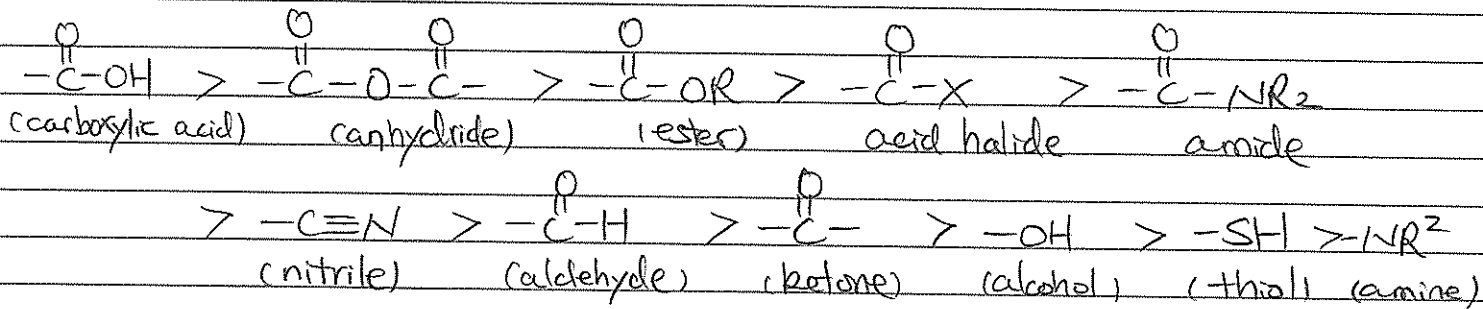 O O O O O O
-C-OH > -C-O-C- > -C-OR > -C-X > -C-NR₂
(carboxylic acid) (anhydride) (ester) acid halide amide
O O
> -C≡N > -C-H > -C- > -OH > -SH > -NR²
(nitrile) (aldehyde) (ketone) (alcohol) (thiol) (amine)